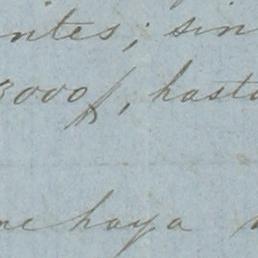 ntes; sin
3000f, hasta
me haya